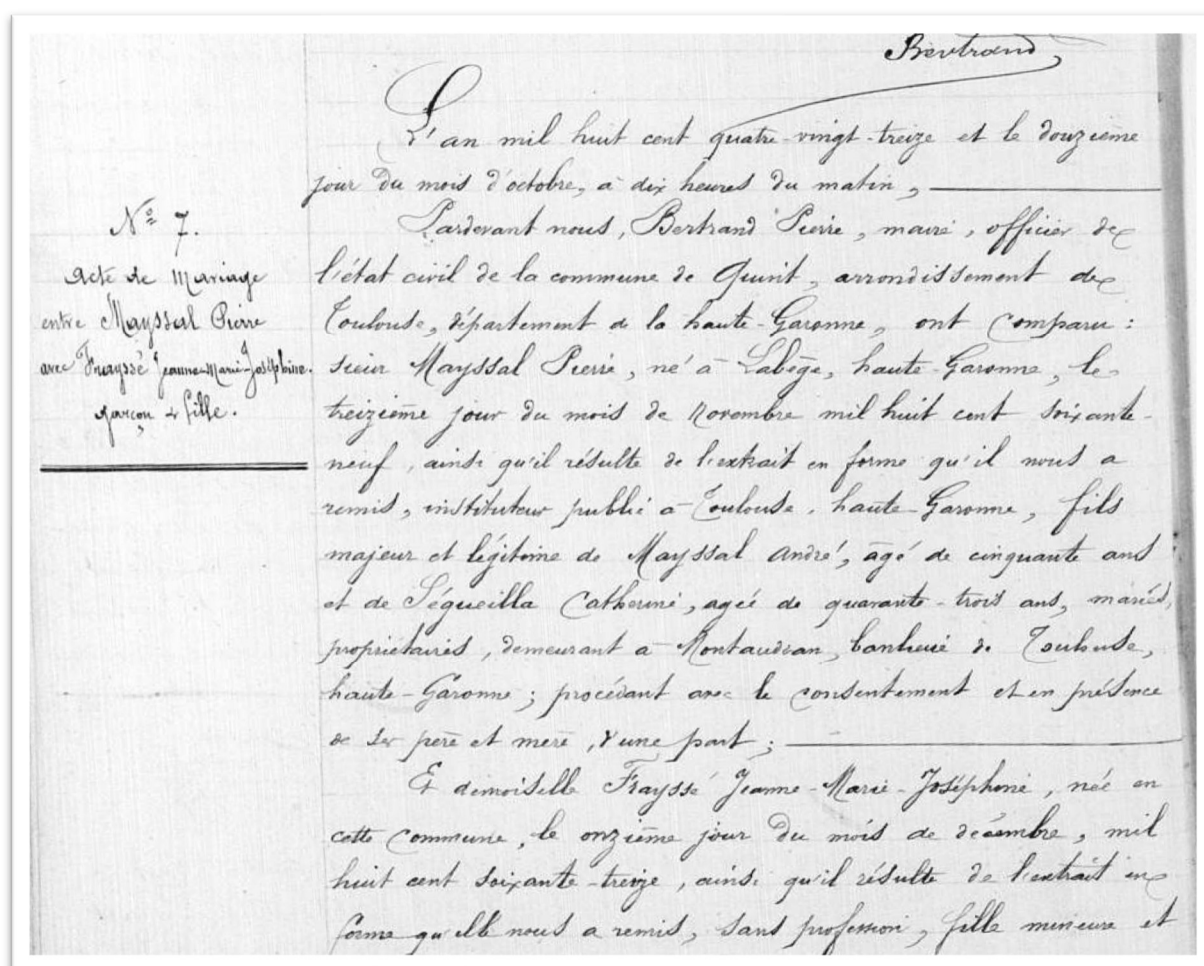 Bertrand
L'an mil huit cent quatre-vingt-treize et le douzième
jour du mois d'octobre, à dix heures du matin,
Pardevant nous, Bertrand Pierre, maire, officier de
l'état civil de la commune de Quint, arrondissement de
Toulouse, département de la haute-Garonne, ont comparu :
sieur Mayssal Pierre, né à Labège, haute-Garonne, le
treizième jour du mois de novembre mil huit cent soixante-
neuf, ainsi qu'il résulte de l'extrait en forme qu'il nous a
remis, instituteur public à Toulouse, haute-Garonne, fils
majeur et légitime de Mayssal André, âgé de cinquante ans
et de Ségueilla Catherine, agée de quarante-trois ans, mariés,
propriétaires, demeurant à Montaudran, banlieue de Toulouse,
haute-Garonne ; procédant avec le consentement et en présence
de ses père et mère, d'une part ;
Et demoiselle Frayssé Jeanne-Marie-Joséphine, née en
cette commune, le onzième jour du mois de décembre, mil
huit cent soixante-treize, ainsi qu'il résulte de l'extrait en
forme qu'elle nous a remis, sans profession, fille mineure et
N° 7.
Acte de Mariage
entre Mayssal Pierre
avec Frayssé Jeanne-Marie-Joséphine.
garçon & fille.